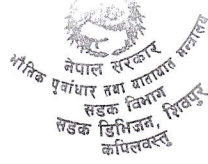 नेपाल सरकार
भौतिक पूर्वाधार तथा यातायात मन्त्रालय
सडक विभाग
सडक डिभिजन, शिवपुर
कपिलवस्तु